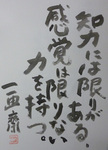 知力には限りが
ある。
感覚は限りない
力を持つ。